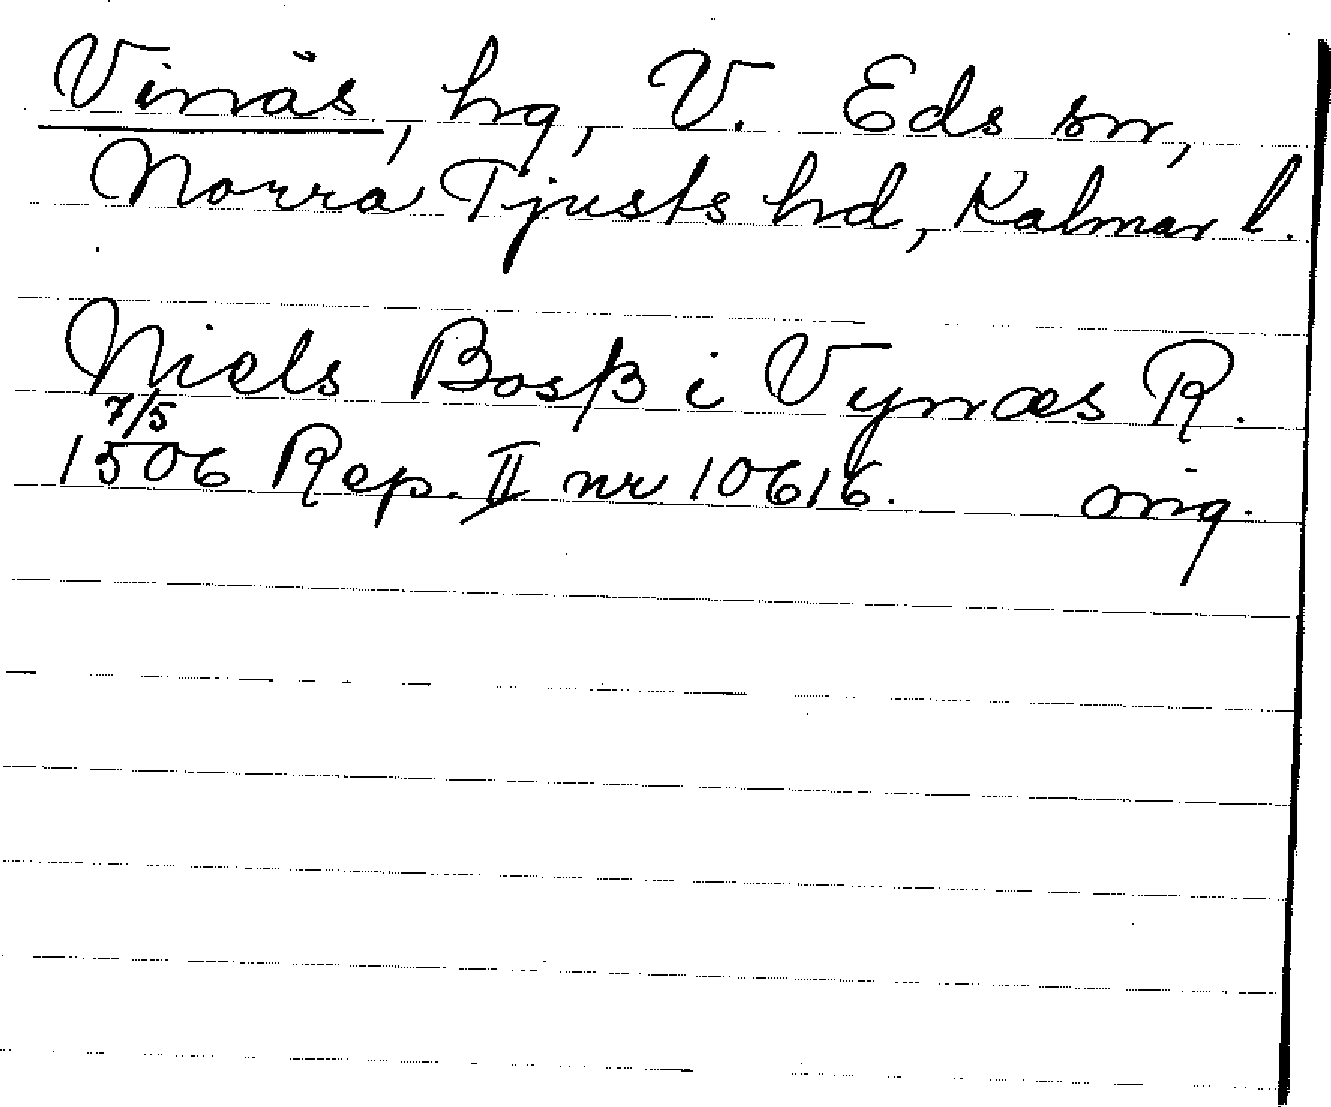 Vinäs, hg, V. Eds sn,
Norra Tjusts hd, Kalmar l.
Niels Bosß i Vynæs R.
7/5
1506 Rep. II nr 10616. orig.